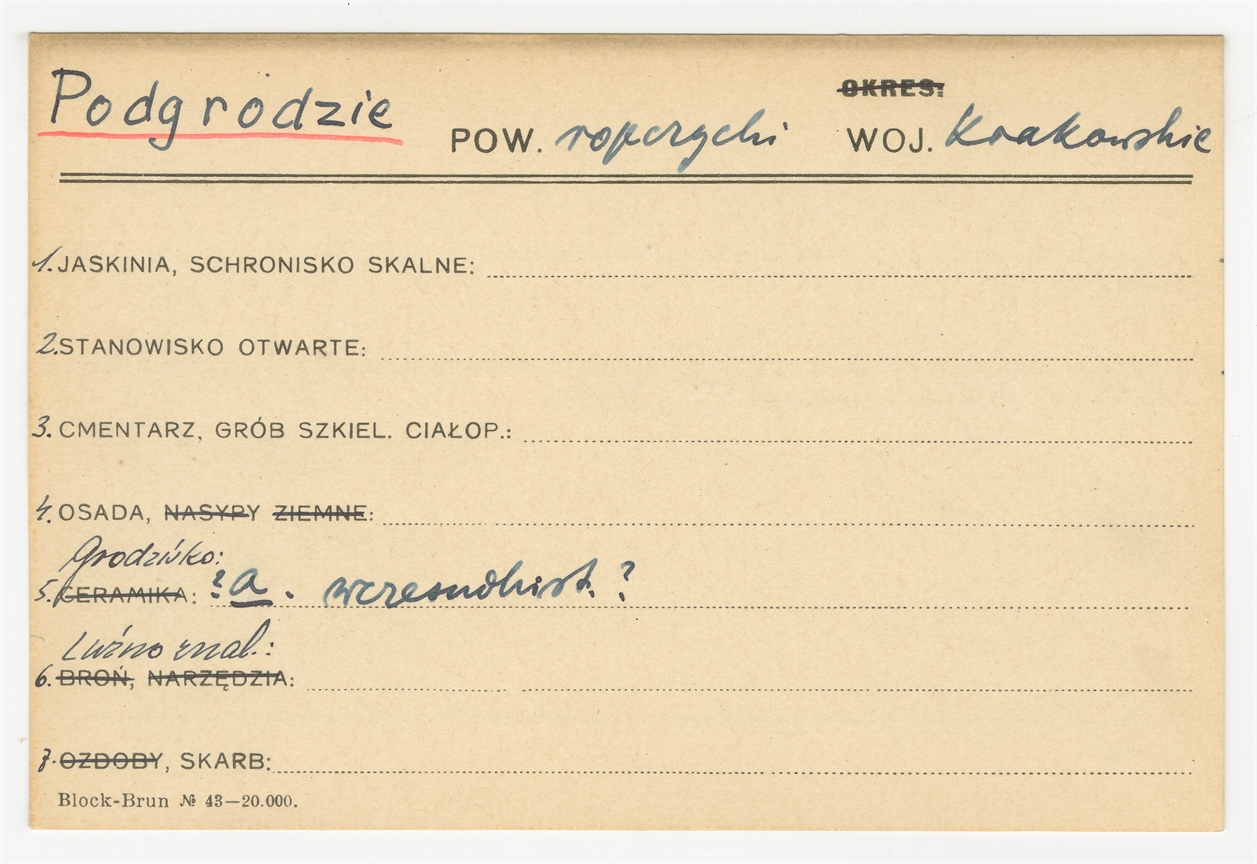 OKRES:
Podgrodzie POW. ropczycki WOJ. Krakowskie
1. JASKINIA, SCHRONISKO SKALNE:
2. STANOWISKO OTWARTE:
3. CMENTARZ, GRÓB SZKIEL. CIAŁOP.:
4. OSADA, NASYPY ZIEMNE:
Grodzisko:
5. CERAMIKA: ? a . wczesnohist. ?
Luźno znal.:
6. BROŃ, NARZĘDZIA:
7. OZDOBY, SKARB:
Block-Brun № 43—20.000.